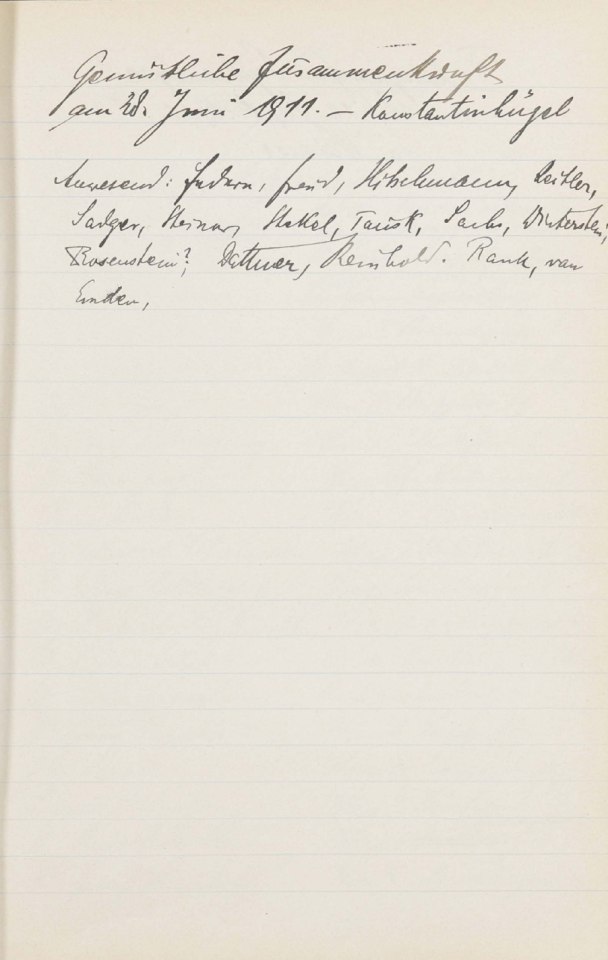 Gemütliche Zusammenkunft
am 28. Juni 1911. – Konstantinhügel
Anwesend: Federn, Freud, Hitschmann, Reitler,
Sadger, Steiner, Stekel, Tausk, Sachs, Winterstein,
Rosenstein?, Dattner, Reinhold. Rank, van
Emden,